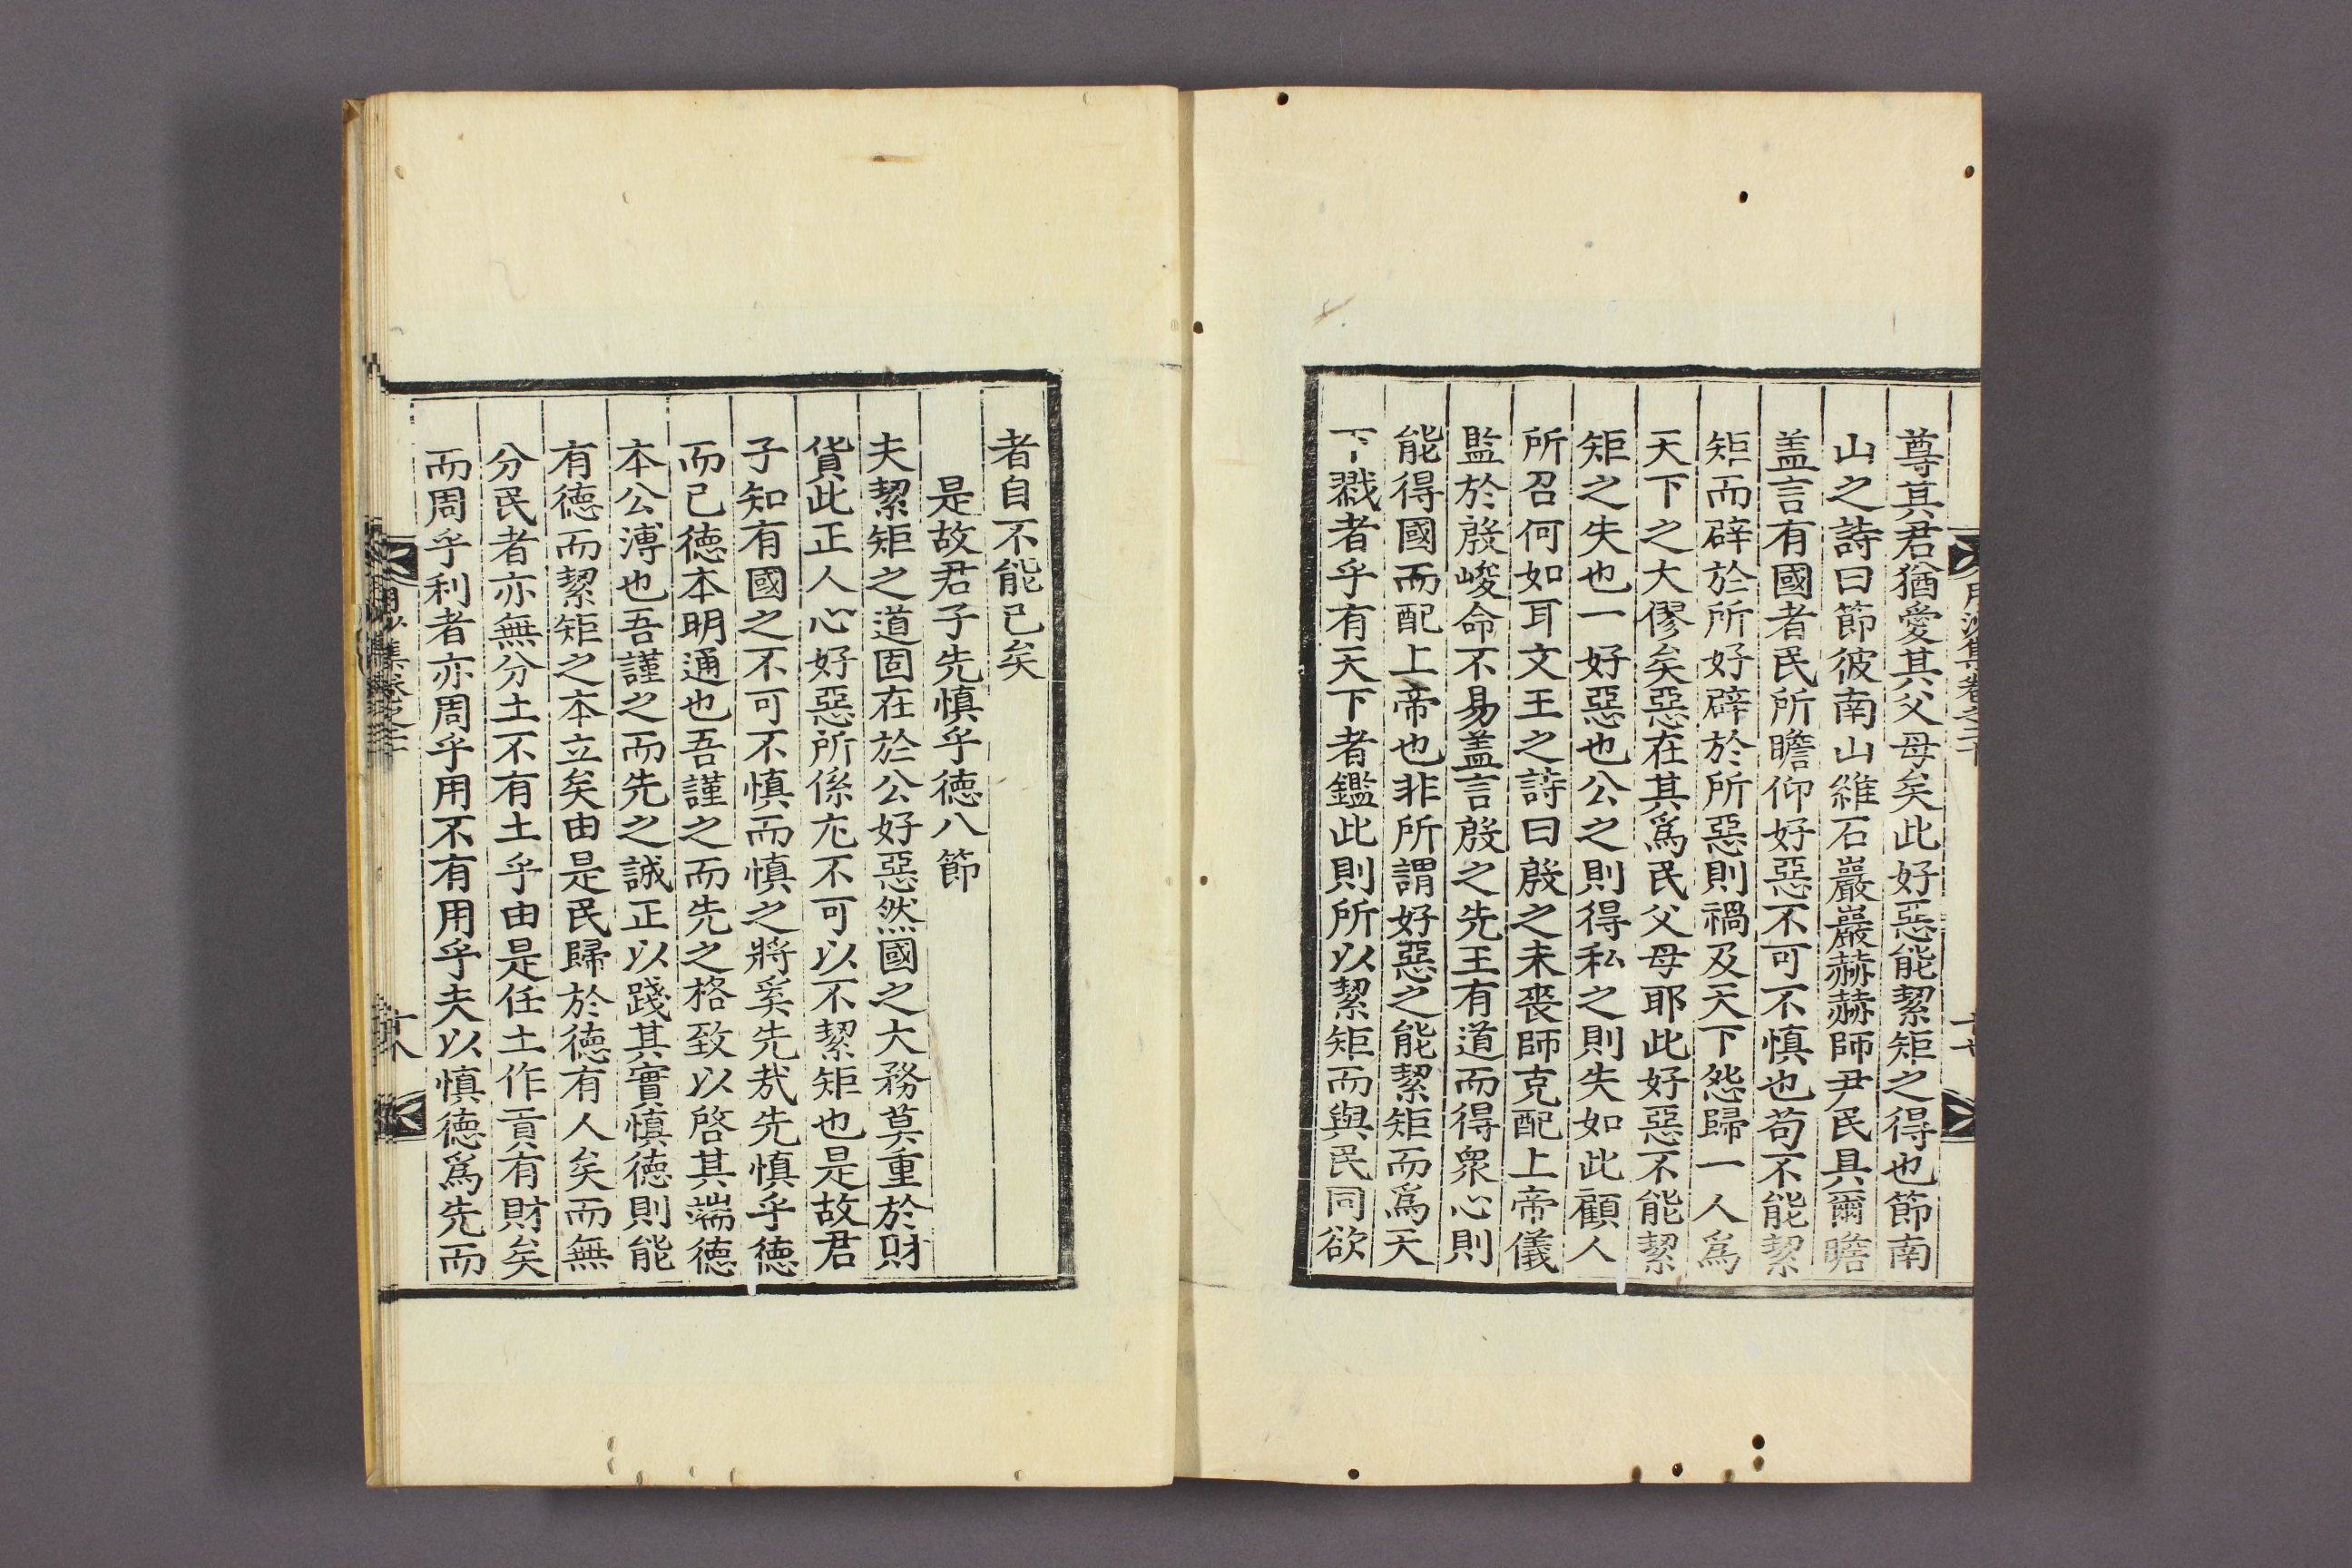 尊其君猶愛其父母矣此好惡能絜矩之得也節南
山之詩曰節彼南山維石巖巖赫赫師尹民具爾瞻
盖言有國者民所瞻仰好惡不可不慎也苟不能絜
矩而辟於所好辟於所惡則禍及天下怨歸一人爲
天下之大僇矣惡在其爲民父母耶此好惡不能絜
矩之失也一好惡也公之則得私之則失如此顧人
所召何如耳文王之詩曰殷之未喪師克配上帝儀
監於殷峻命不易盖言殷之先王有道而得衆心則
能得國而配上帝也非所謂好惡之能絜矩而爲天
下戮者乎有天下者鑑此則所以絜矩而與民同欲
者自不能已矣
是故君子先慎乎德八節
夫絜矩之道固在於公好惡然國之大務莫重於財
貨此正人心好惡所係尤不可以不絜矩也是故君
子知有國之不可不慎而慎之將奚先哉先慎乎德
而已德本明通也吾謹之而先之格致以啓其端德
本公溥也吾謹之而先之誠正以踐其實慎德則能
有德而絜矩之本立矣由是民歸於德有人矣而無
分民者亦無分土不有土乎由是任土作貢有財矣
而周乎利者亦周乎用不有用乎夫以慎德爲先而